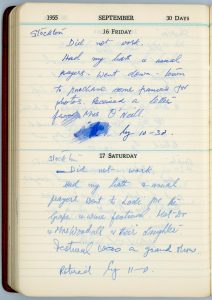 1955 SEPTEMBER 30 DAYS
16 FRIDAY
Stockton
Did not work.
Had my bath & usual
prayers. Went down-town
to purchase some frames for
photos. Received a letter
from Mrs O'Neill
by 10-30.
17 SATURDAY
Stockton
Did not work.
Had my bath & usual
prayers. Went to Lodi for the
Grape & wine festival
& Mrs Woodhall & their daughter
Festival was a grand
Retired by 11-0.